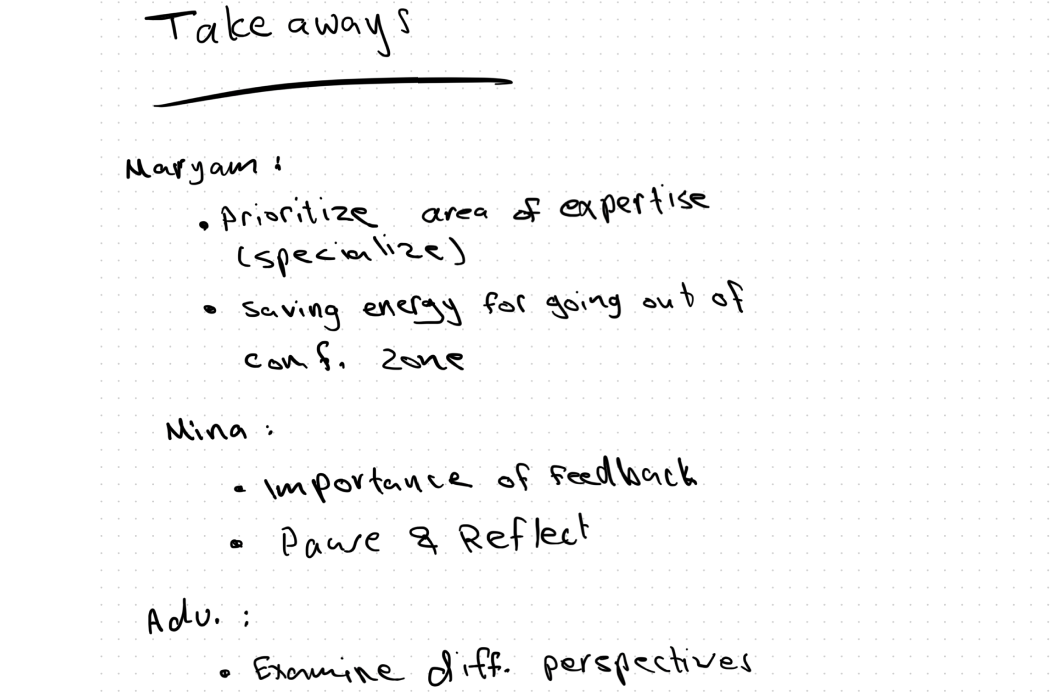 Take aways
Maryam :
• Prioritize area of expertise
(specialize)
• Saving energy for going out of
comf. zone
Mina :
• Importance of Feedback
• Pause & Reflect
Adv. :
• Examine diff. perspectives